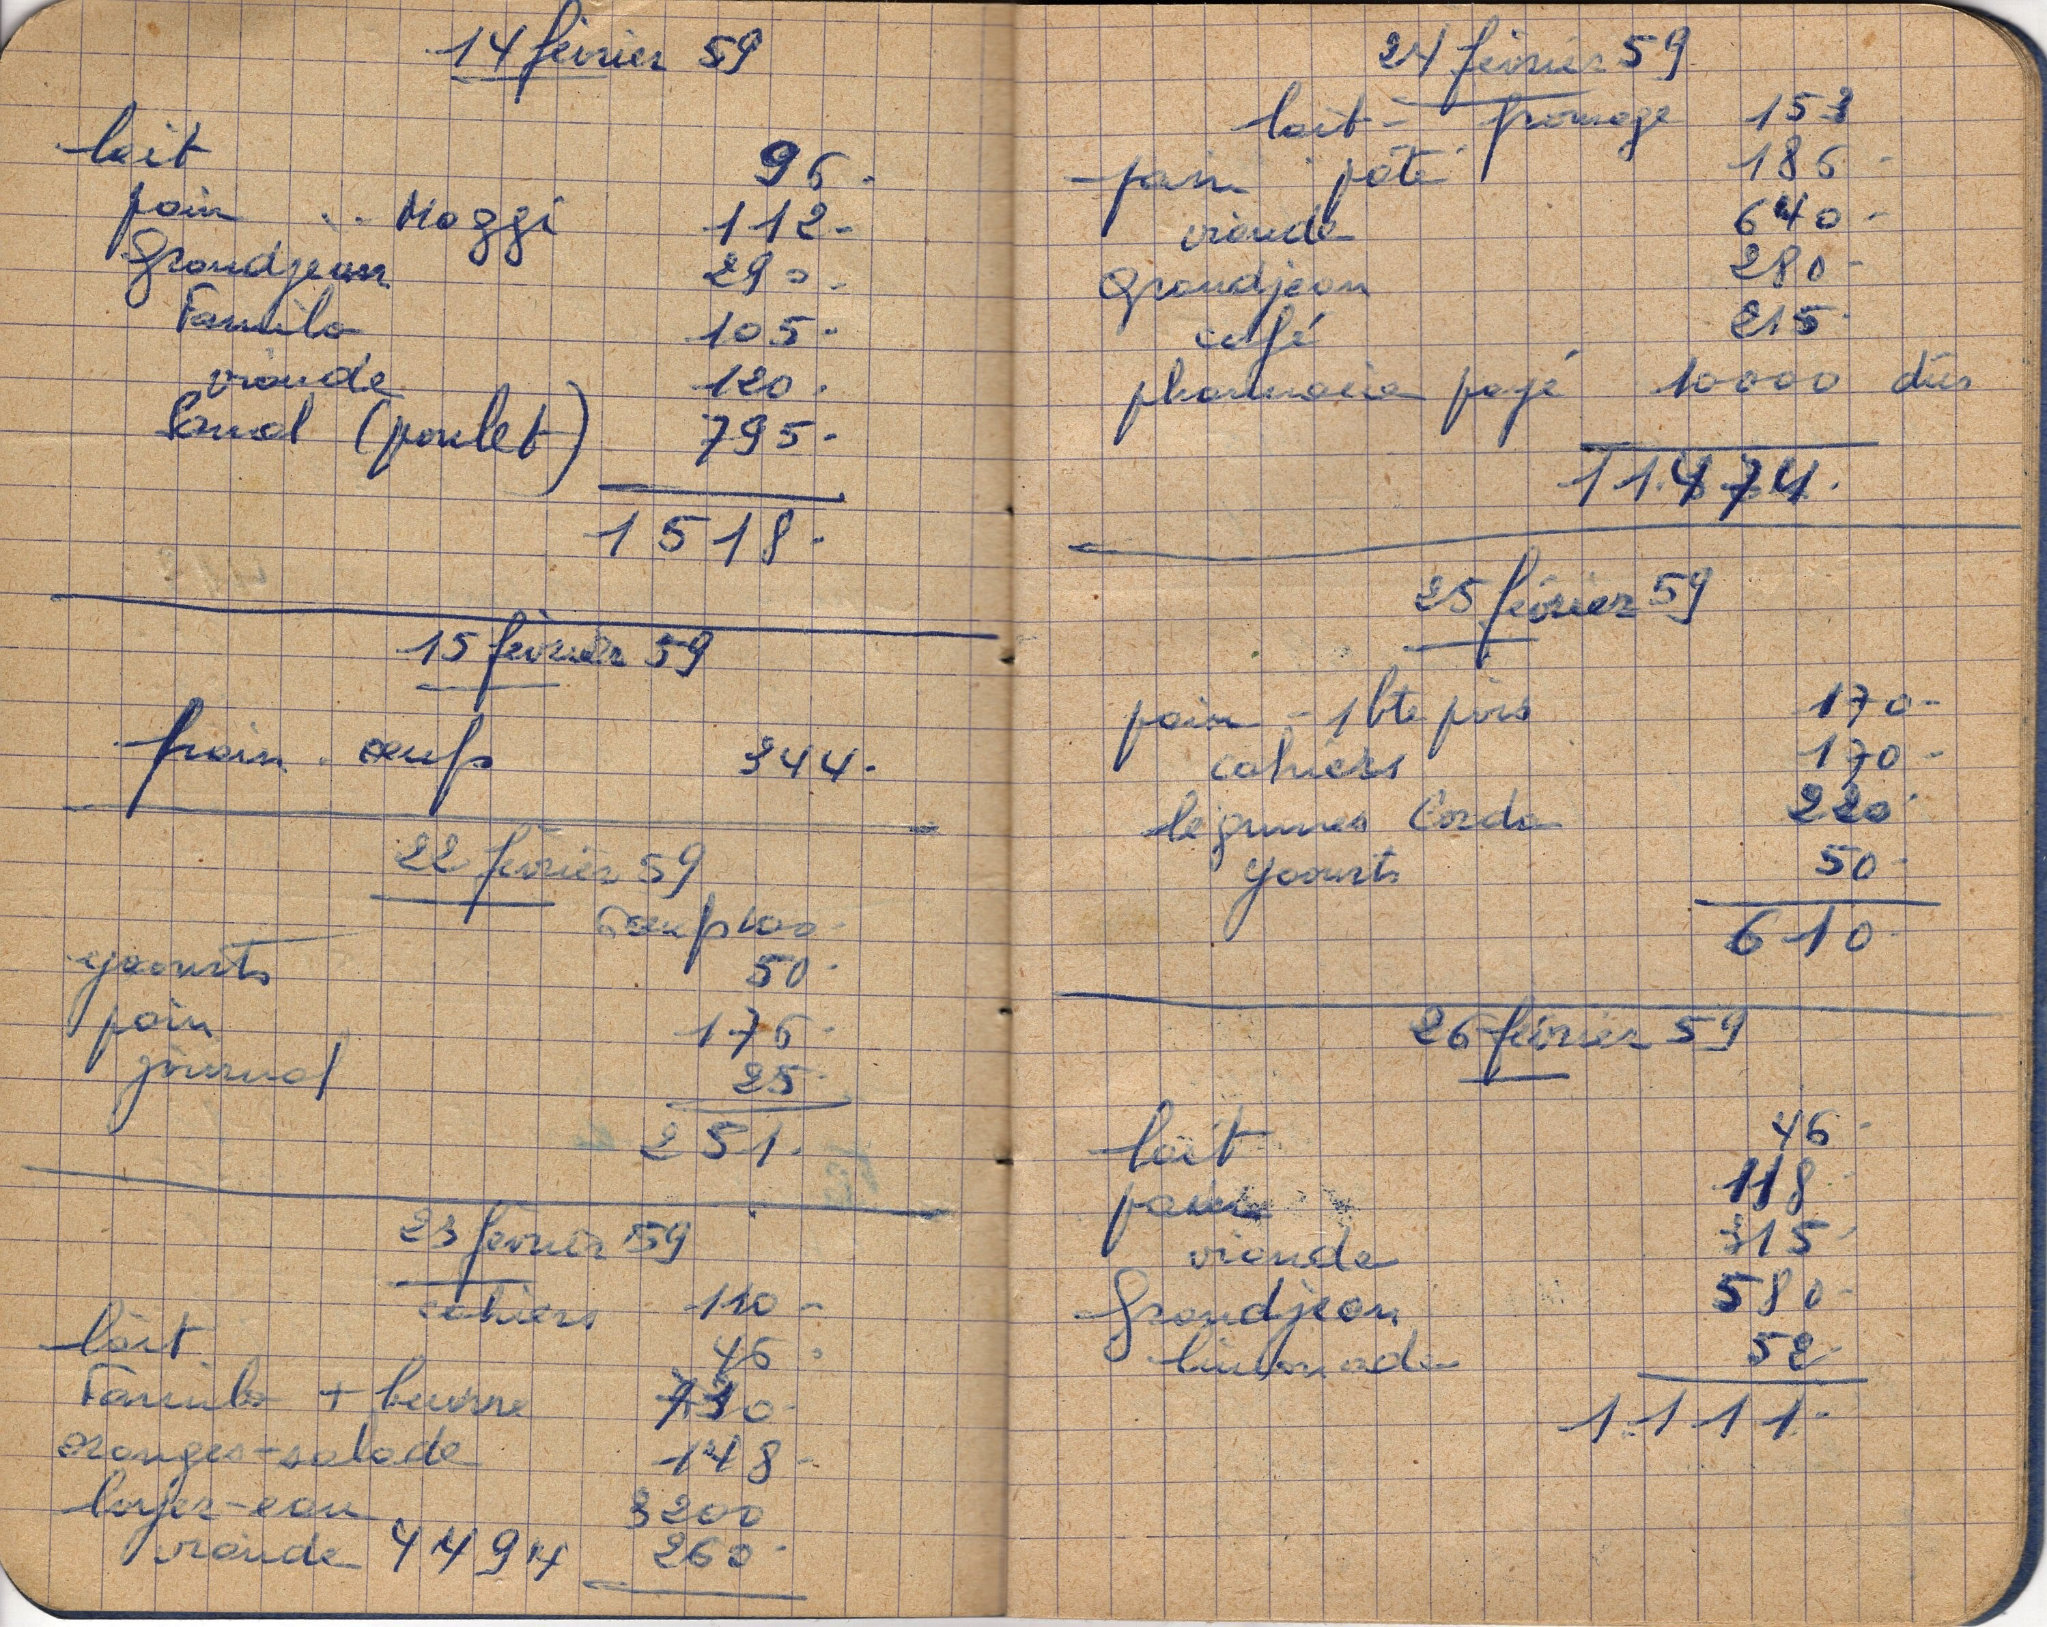 14 février 59
lait 96.
pain .. Maggi 112.-
Grandjean 290.
Familo 105.
viande 120.
Sanal (poulet) 795.
1518.
15 février 59
pain. œufs 344.
22 février 59
œufs 100.
yaourts 50.
pain 176.
journal 25.
251.
23 février 59
cahiers 110 -
lait 46.
Familo + beurre 730.
oranges-salade 148.
loyer-eau 3200
viande 4494 260.
24 février 59
lait - fromage 153
pain pâté 186 -
viande 640 -
Grandjean 280 -
café 215.
pharmacie payé 10000 dûs
11.474.
25 février 59
pain - 1 bte pois 170 -
cahiers 170 -
légumes Corda 220.
yaourts 50 -
610.
26 février 59
lait 46.
pain 118
viande 315.
Grandjean 580 -
limonade 52.
1.111.-